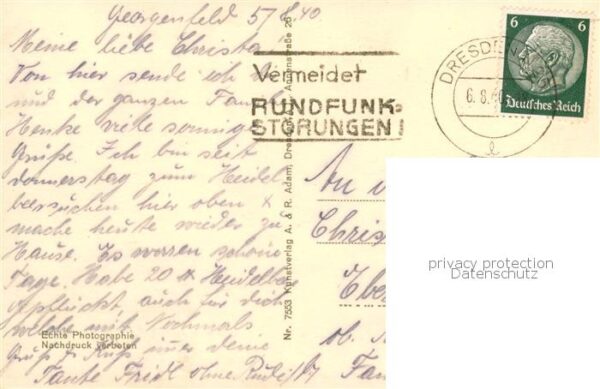 Georgenfeld 5/8.40
Meine liebe Christa
Von hier sende ich
und der ganzen
Henke viele sonnige
Grüße. Ich bin seit
donnerstag zum Heidel
beersuchen hier oben &
mache heute wieder zu
Hause. Es waren schöne
Tage. Habe 20 Heidelbeer
gepflückt, auch für dich
welche mit. Nochmals
Gruß & Kuß deine
Tante Fridl ohne
Echte Photographie
Nachdruck verboten
Nr. 7553 Kunstverlag A. & R. Adam, Dresden
Vermeidet
RUNDFUNK-
STÖRUNGEN!
DRESDEN
6.8.40
l
6 6
Deutsches Reich
An
Chris
Eber
ob.
privacy protection
Datenschutz